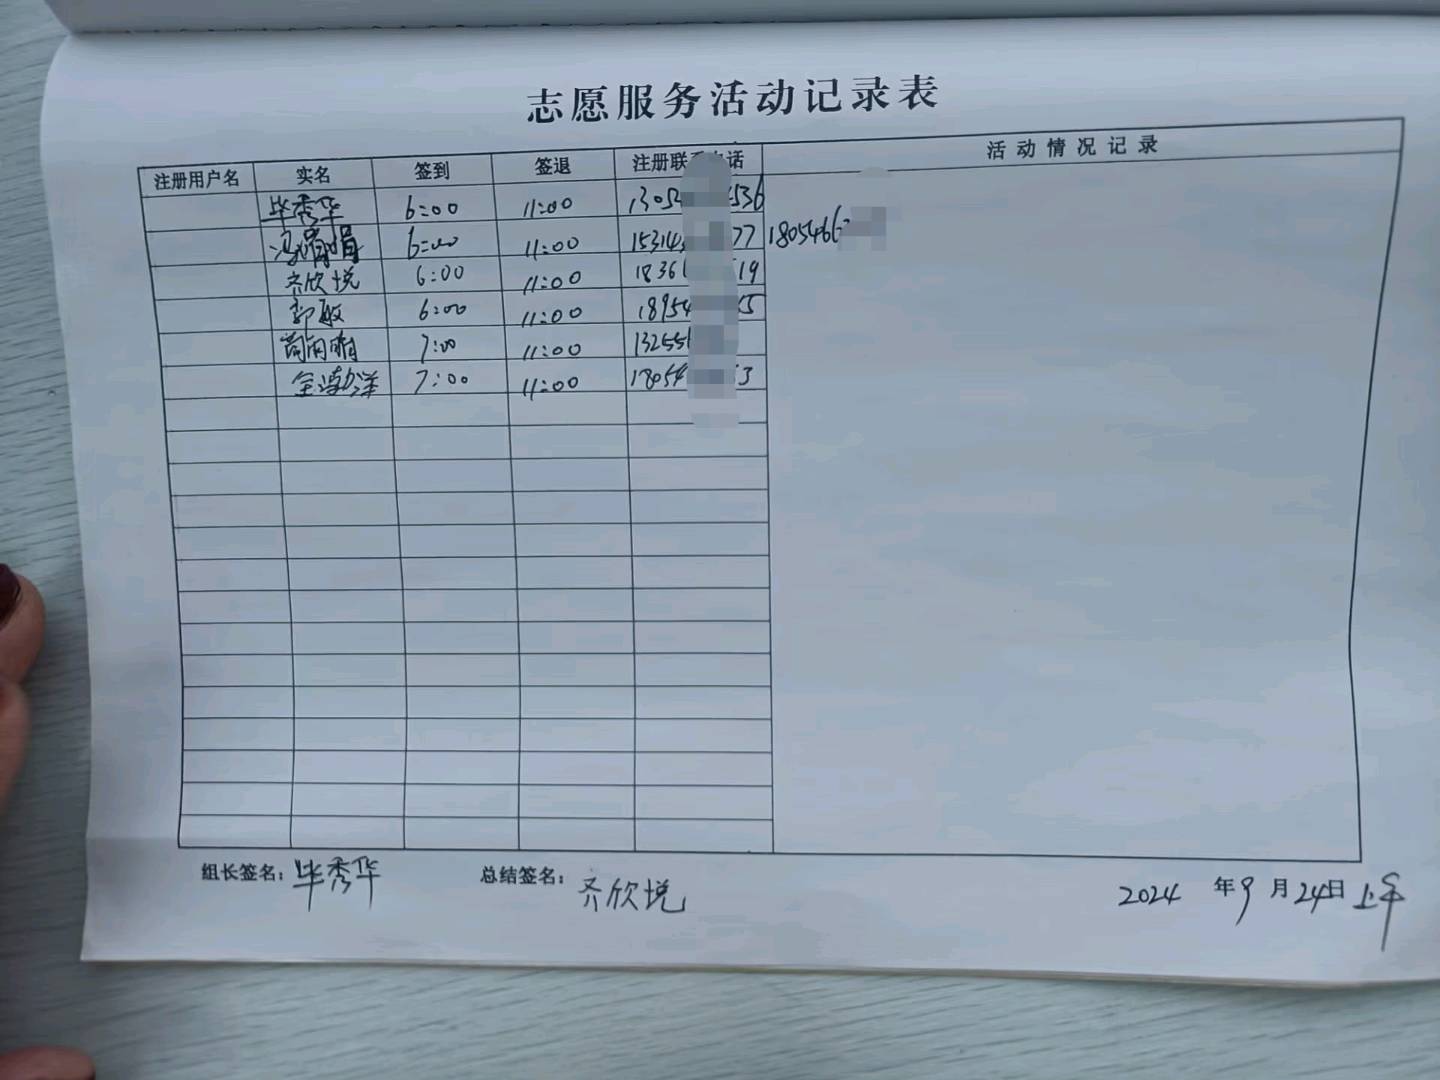 志愿服务活动记录表
注册用户名 实名 签到 签退 注册联系电话 活动情况记录
毕秀华 6:00 11:00 1305 536
6:00 11:00 15314 77 1805466
齐欣悦 6:00 11:00 1836 19
郭敏 6:00 11:00 18954 5
7:00 11:00 13255
7:00 11:00 18054 3
组长签名：毕秀华 总结签名：齐欣悦 2024年9月24日上午